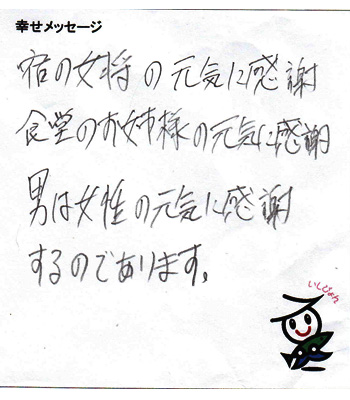 幸せメッセージ
宿の女将の元気に感謝
食堂のお姉様の元気に感謝
男は女性の元気に感謝
するのであります。
いしぴょん